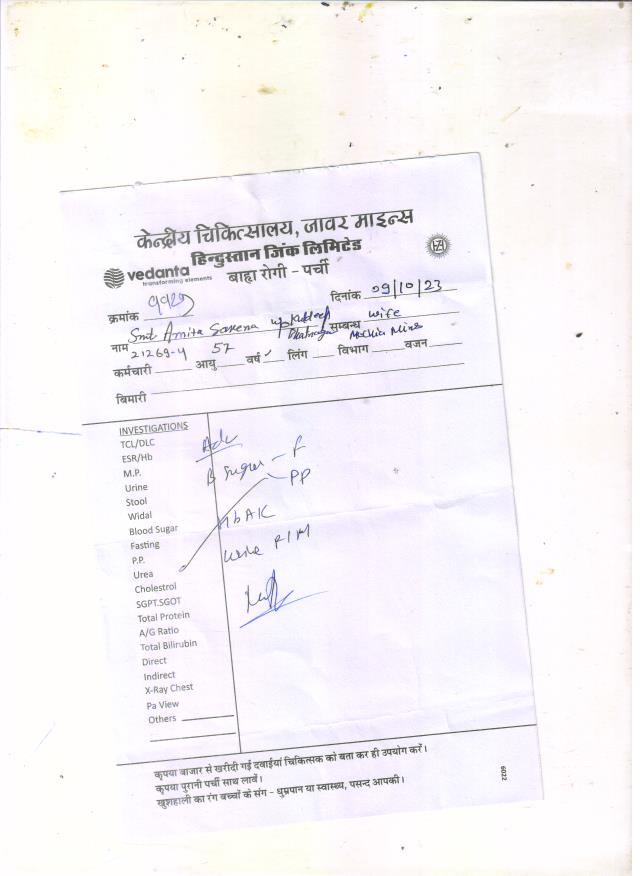 केन्द्रीय चिकित्सालय, जावर माइन्स
हिन्दुस्तान जिंक लिमिटेड
vedanta
transforming elements
बाह्य रोगी - पर्ची
क्रमांक
दिनांक 09/10/23
नाम Smt Amita Saxena सम्बन्ध wife
Mochia Mines
कर्मचारी 21269-4 आयु 57 वर्ष लिंग विभाग वजन
बिमारी
INVESTIGATIONS
TCL/DLC
Adv
ESR/Hb
B Sugar - F
M.P.
PP
Urine
Stool
Widal
HbA1C
Blood Sugar
Fasting
Urine R/M
P.P.
Urea
Cholestrol
SGPT.SGOT
Total Protein
A/G Ratio
Total Bilirubin
Direct
Indirect
X-Ray Chest
Pa View
Others
कृपया बाजार से खरीदी गई दवाईयां चिकित्सक को बता कर ही उपयोग करें।
कृपया पुरानी पर्ची साथ लावें।
खुशहाली का रंग बच्चों के संग - धुम्रपान या स्वास्थ्य, पसन्द आपकी।
6022